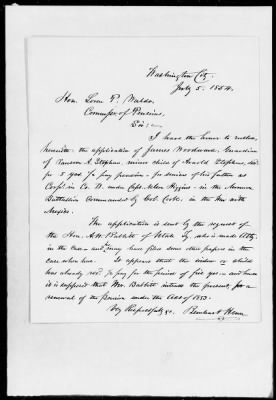 Washington City
July 5. 1854.
Hon. Loren P. Waldo,
Commr of Pensions,
Sir:
I have the honor to enclose,
herewith the application of James Woodward, Guardian
of Ransom A. Stephens, minor child of Arnold Stephens, decd
for 5 years ½ pay pension - for service of his father as
Corpl. in Co. B. under Capt. Nelson Higgins - in the Mormon
Battalion Commanded by Col. Cooke, in the War with
Mexico.
The application is sent by the request of
the Hon. A. W. Babbitt of Utah Ty. who is made Atty.
in the case - and may have filed some other papers in the
case when here. It appears that the widow or child
has already recd. ½ pay for the period of five yrs - and hence
it is supposed that Mr. Babbitt intends the present for a
renewal of the pension under the Act of 1853.
Very Respectfully &c.
Bernhart Henn